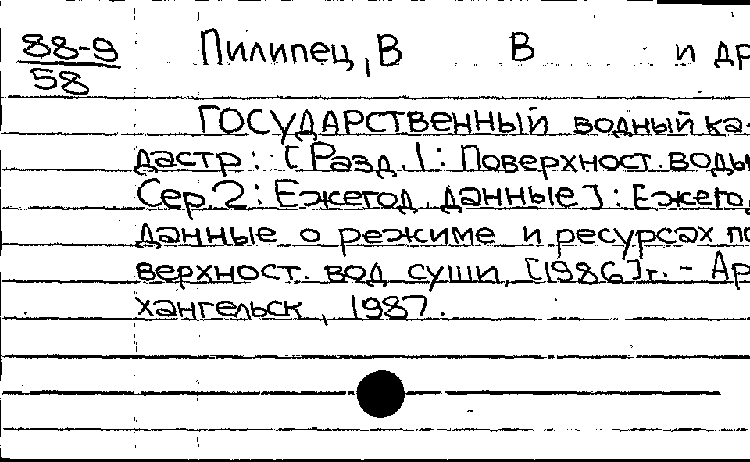 88-9
58
Пилипец, В В и др
ГОСУДАРСТВЕННЫЙ водный ка-
дастр: [Разд. 1: Поверхност. воды
Сер. 2: Ежегод. данные]: Ежегод
данные о режиме и ресурсах по
верхност. вод суши, [1986]г. - Ар
хангельск, 1987.